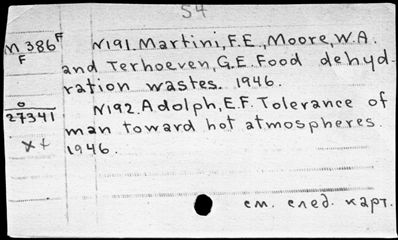 54
M 386F N191. Martini, F.E., Moore, W.A.
F and Terhoeven, G.E. Food dehyd-
ration wastes. 1946.
0 N192. Adolph, E.F. Tolerance of
27341 man toward hot atmospheres.
x+ 1946.
см. след. карт.